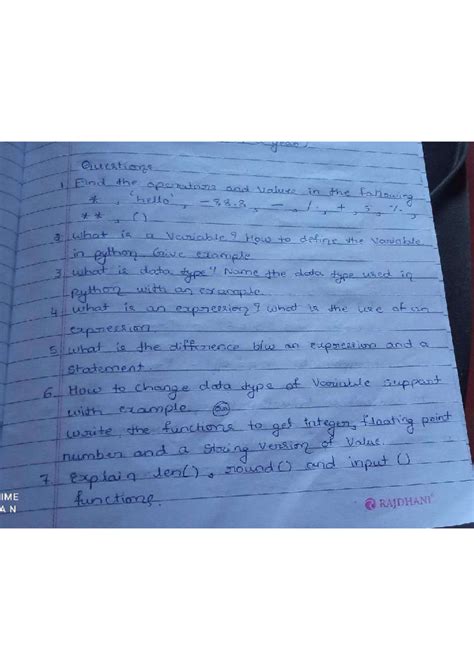 year)
Questions
1 Find the operators and values in the following
* , 'hello', -88.8, -, /, +, 5, %,
**, ()
2 what is a variable? How to define the variable
in python Give example
3 what is data type? Name the data type used in
Python with an example
4 what is an expression? what is the use of an
expression.
5 what is the difference b/w an expression and a
statement
6. How to change data type of variable support
with example (OR)
write the functions to get integer, floating point
number and a string version of value.
7. explain len(), round() and input ()
functions.
RAJDHANI
IME
AN